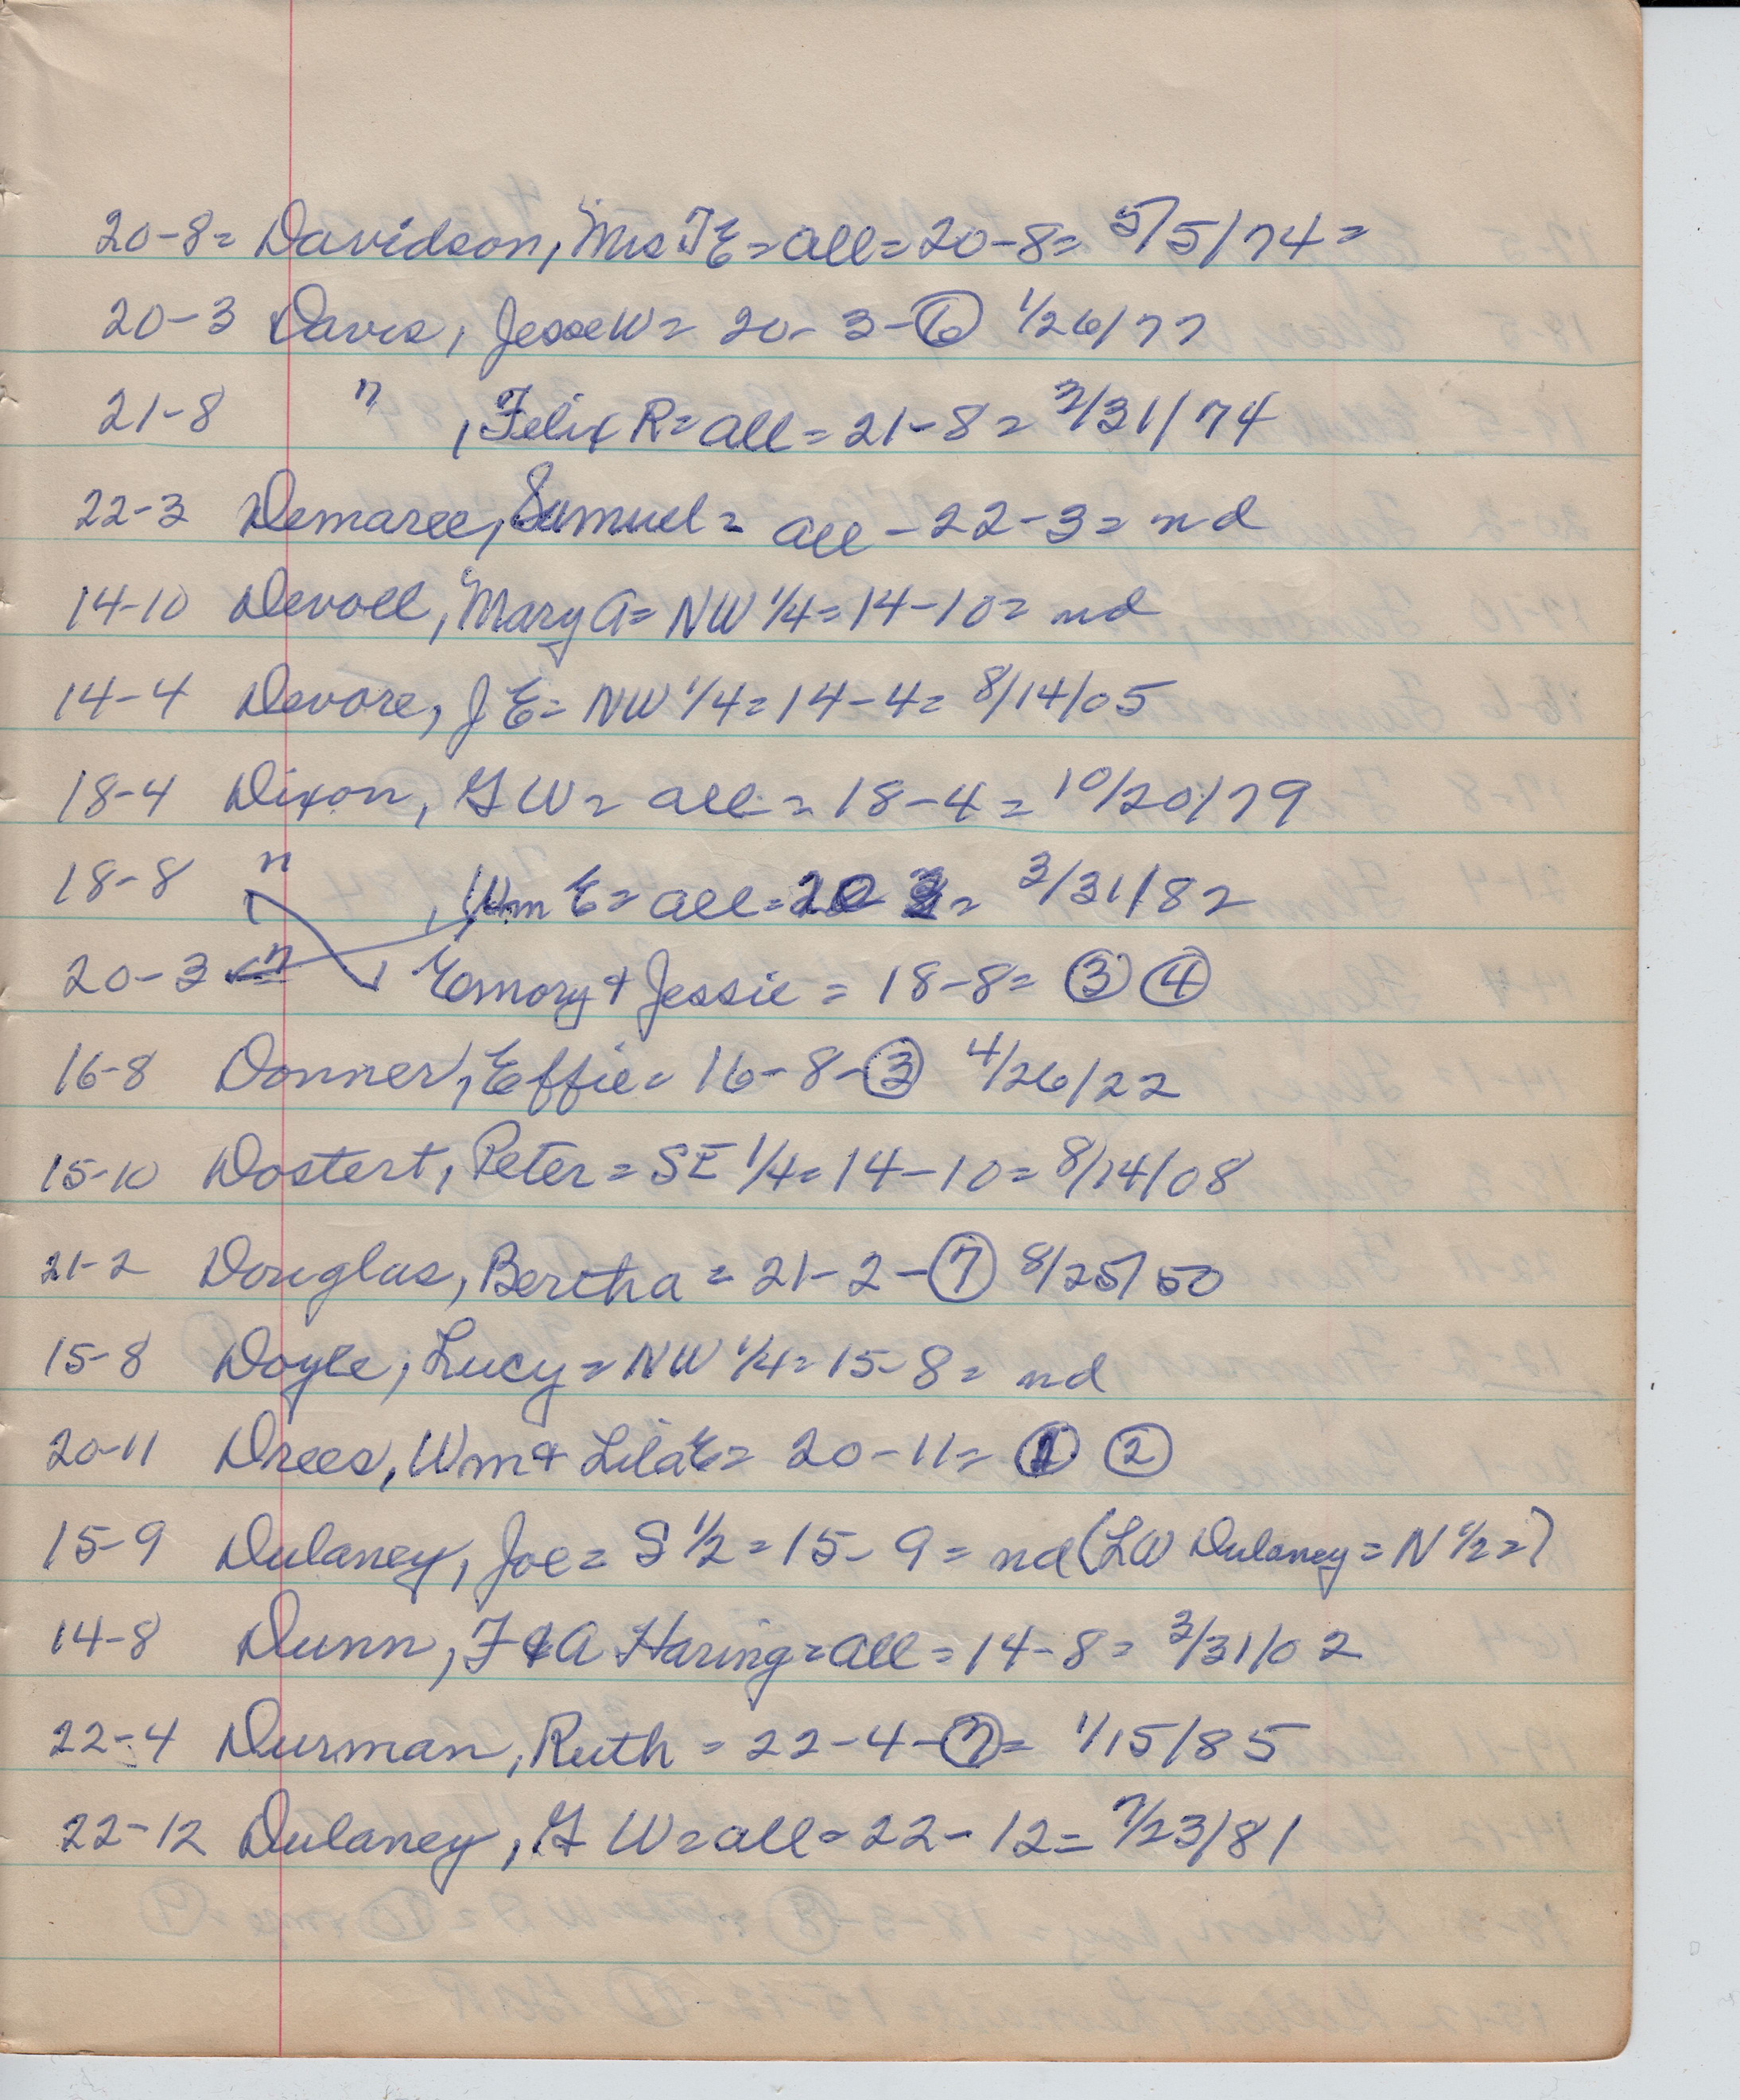 20-8= Davidson, Mrs T E = all = 20-8= 5/5/74=
20-3 Davis, Jesse W = 20-3-⑥ 1/26/77
21-8 " , Felix R = all = 21-8 = 3/31/74
22-3 Demaree, Samuel = all - 22-3 = nd
14-10 Devoll, Mary A = NW 1/4 = 14-10 = nd
14-4 Devore, J E = NW 1/4 = 14-4 = 8/14/05
18-4 Dixon, G W = all = 18-4 = 10/20/79
18-8 " , Wm E = all = 20 3 = 3/31/82
20-3 " Emory & Jessie = 18-8 = ③ ④
16-8 Donner, Effie = 16-8-③ 4/26/22
15-10 Dostert, Peter = SE 1/4 = 14-10 = 8/14/08
21-2 Douglas, Bertha = 21-2-⑦ 8/25/50
15-8 Doyle, Lucy = NW 1/4 = 15-8 = nd
20-11 Drees, Wm & Lila E = 20-11 = ① ②
15-9 Dulaney, Joe = S 1/2 = 15-9 = nd (LW Dulaney = N 1/2 =)
14-8 Dunn, F & A Haring = all = 14-8 = 3/31/02
22-4 Durman, Ruth = 22-4-⑦ = 1/15/85
22-12 Dulaney, G W = all = 22-12 = 7/23/81